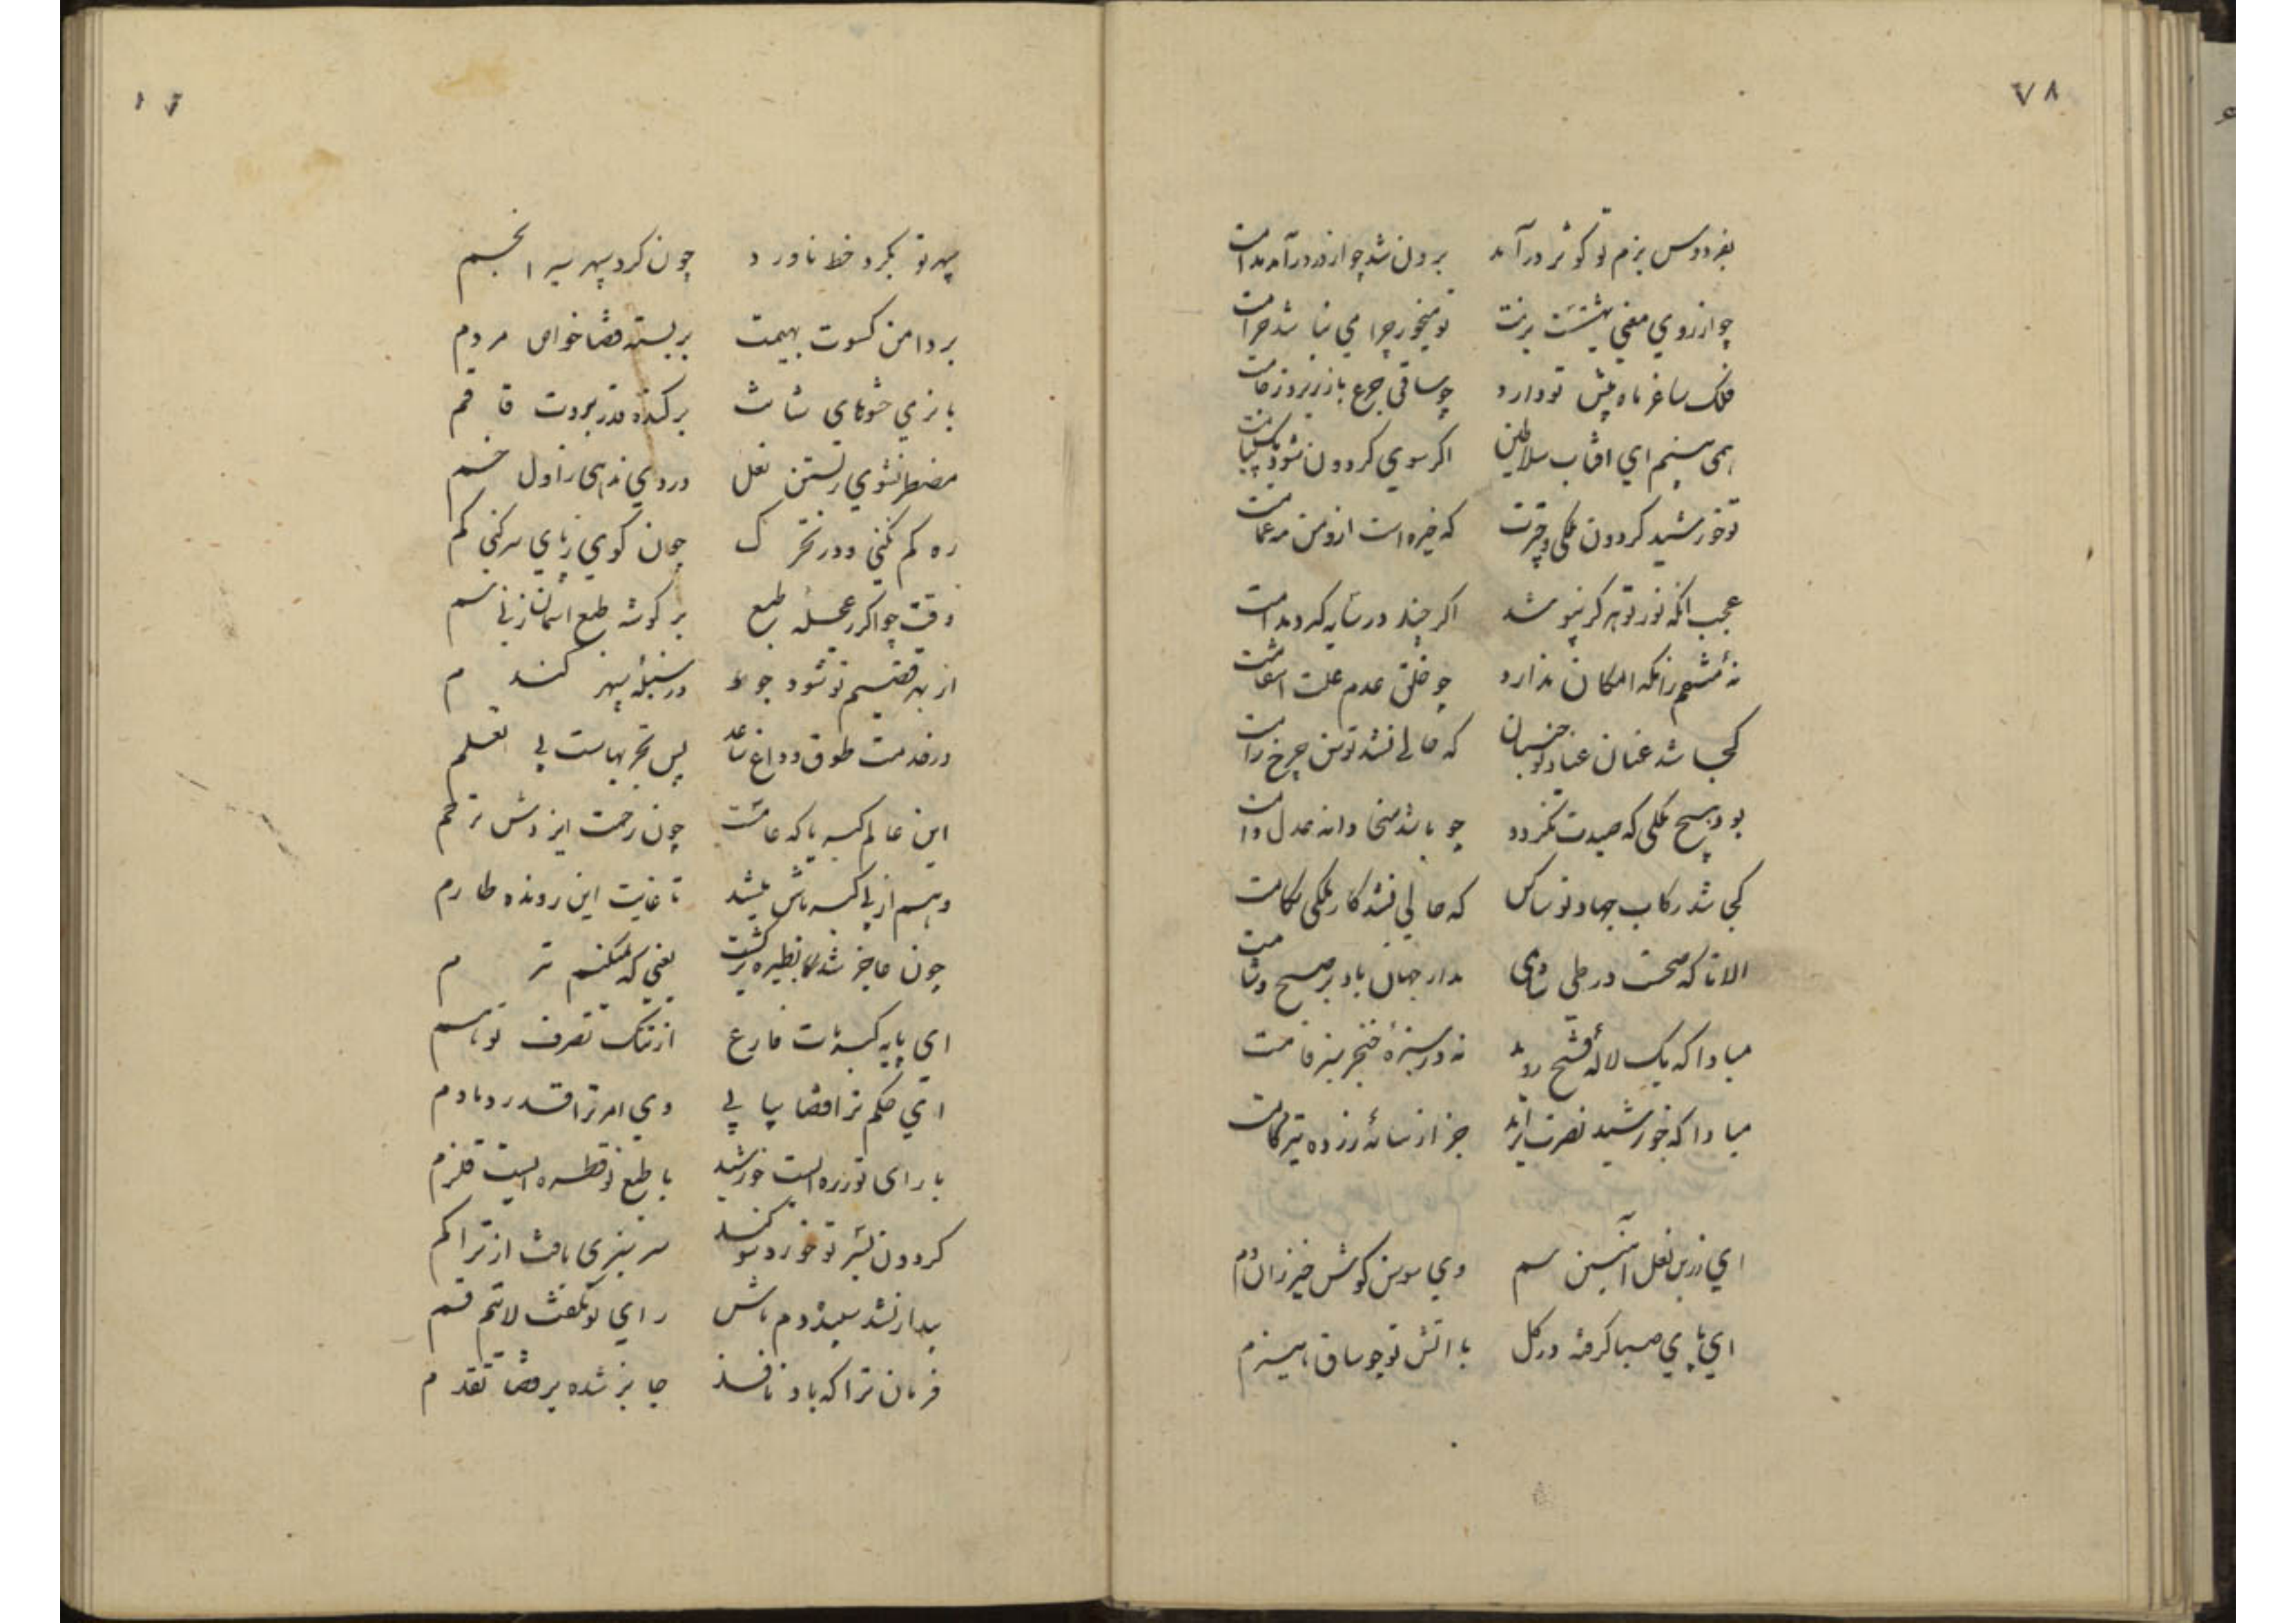 ٧٨
بفردوس بزم تو کوثر درآمد برون شد چو از در درآمد مدامت
چو از روی معنی بهشتست بزمت تو میخور چرا می نباشد حرامت
فلک ساغر ماه پیش تو دارد چو ساقی جرع باز ریزد ز جامت
همی بینم ای آفتاب سلاطین اگر سوی گردون شود یک پیامت
تو خورشید گردون ملکی و چترت که خیره است ازو من مه غمامت
عجب آنکه نور تو هرگز نپوشد اگر چند در سایه گیرد مدامت
نه مستم زانکه امکان ندارد چو خلق عدم علت انتقامت
کجا شد عنان عناد تو جنبان که حالی نشد توسن چرخ رامت
بود هیچ ملکی که صیدت نگردد چو باشد سخا دانه عدل دامت
کجا شد رکاب جهاد تو ساکن که حالی نشد کار ملکی بکامت
الا تا که صحت در طی مدار جهان باد بر صبح و شامت
مبادا که یک لاله فتح روید نه در سبزه خنجر سبز فامت
مبادا که خورشید نصرت برآید جز از سایه زرده تیزگامت
ای زرین نعل آهنین سم وی سوسن گوش خیزران دم
ای پای صبا گرفته در گل با آتش تو چو ساق هیزم
سپهر تو بگرد خط ناورد چون گرد سپهر سیر انجم
بر دامن کسوت بهیمت بربسته قضا خواص مردم
بازی حشوهای شانت برکنده قدر بروت قاقم
مضطر نشوی ز بستن نعل در وی ندهی ز اول خم
ره گم نکنی و در تحرک چون گوی ز پای سر کنی گم
وقت جو اگر ز عجله طبع بر گوشه طبع آسمان زنی سم
از بهر قضیم تو شود جو در سنبله سپهر گندم
در خدمت طوق و داغ شاهد بس تجربهاست بی تعلم
این عالم کبریا که عامست چون رحمت ایزدش ترحم
وهم از پی کبریاش میشد تا غایت این رونده طارم
چون عاجز شد بطیره برگشت یعنی که نمیکنم تر م
ای پایه کبریات فارغ از ننگ تصرف توهم
ای حکم ترا قضا پیاپی وی امر ترا قدر دمادم
با رای تو ذره ایست خورشید با طبع تو قطره ایست قلزم
گردون بسر تو خورد سوگند سرسبزی یافت از تراکم
بیدار نشد سپیده دم باش رای تو نگفت لاتنم قم
فرمان ترا که باد نافذ جایز شده بر قضا تقدم